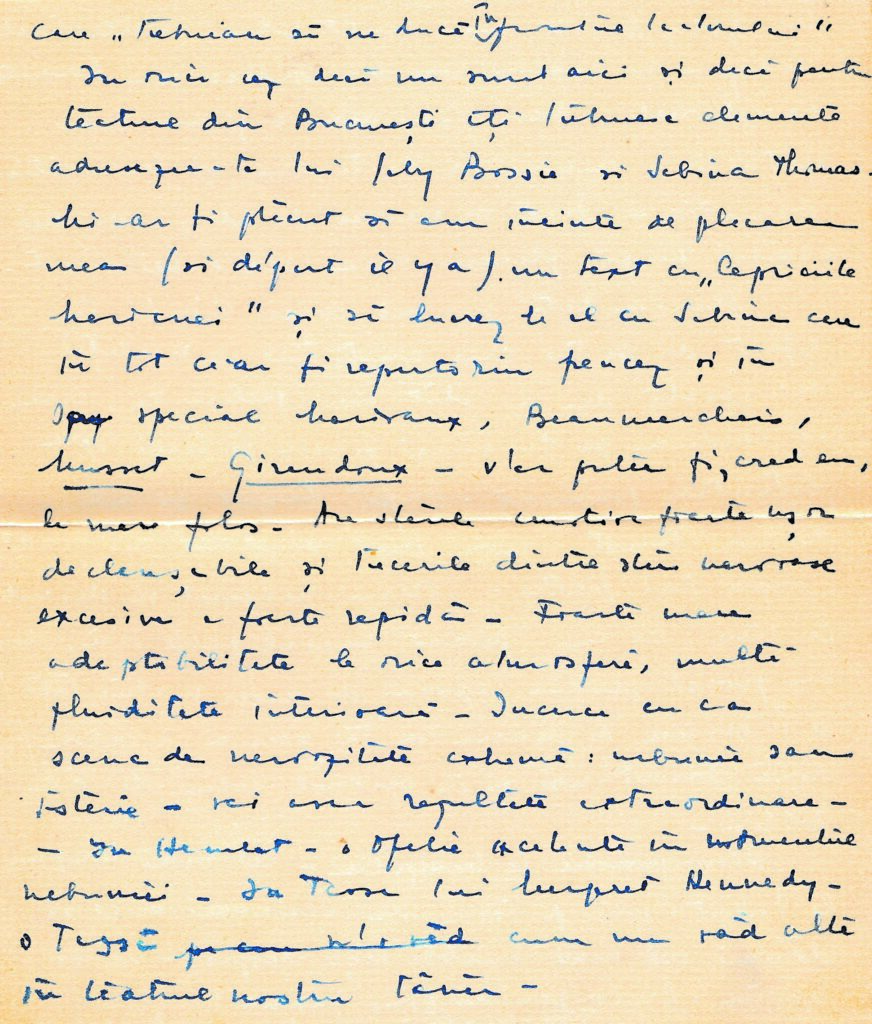 care „trebuiau să ne ducă în
In orice caz dacă nu sunt aici și dacă pentru
teatrul din București îți trebuiesc elemente
adresează-te lui Geby Bossie și Sabina Thomas.
Mi-ar fi plăcut să am înainte de plecarea
mea (si départ il y a). un text cu „Capriciile
Marianei" și să lucrez la el cu Sabina care
în tot ce-ar fi repertoriu francez și în
special Marivaux, Beaumarchais,
Musset - Giraudoux - v'ar putea fi, cred eu,
de mare folos - Are stările emotive foarte ușor
declanșabile și trecerile dintre stări nervoase
excesive e foarte rapidă - Foarte mare
adaptabilitate la orice atmosferă, multă
fluiditate interioară - Incearcă cu ea
scene de nervozitate extremă: nebunie sau
isterie - vei avea rezultate extraordinare -
- In Hamlet - o Ofelie excelentă în momentele
nebuniei - In Tessa lui Margaret Kennedy -
o Tessă cum nu văd altă
în teatrul nostru tânăr -